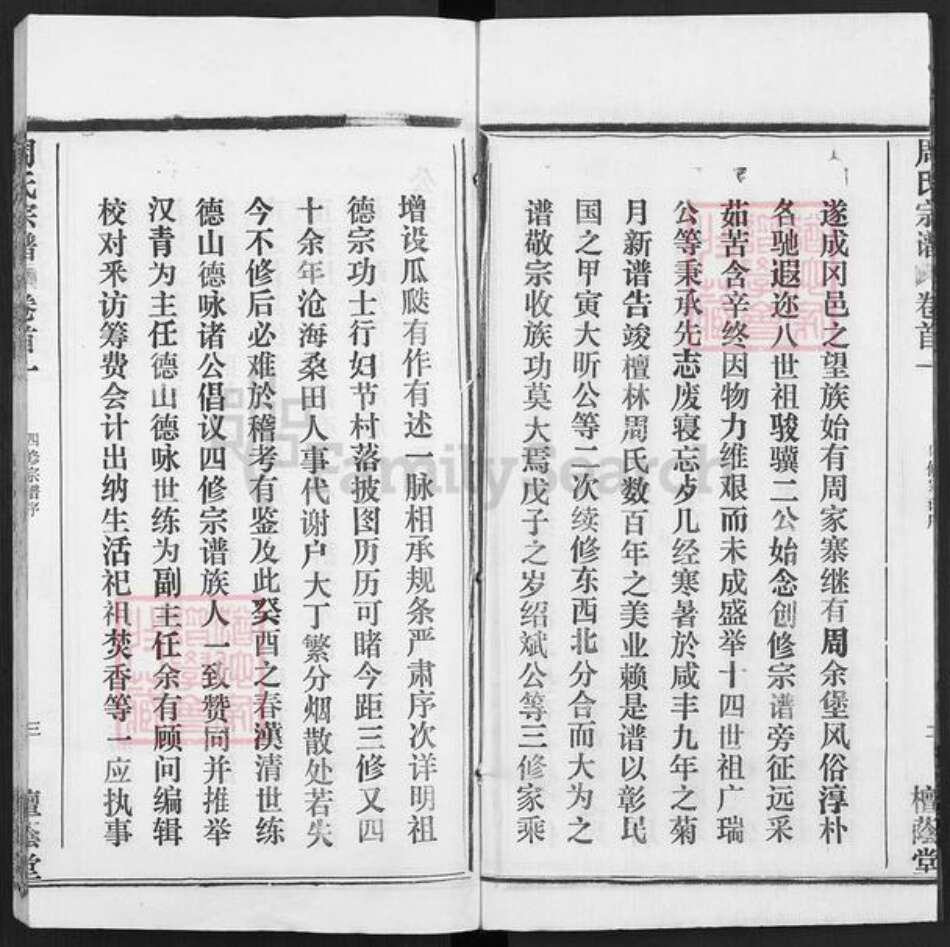 周氏宗谱 卷首一
檀荫堂
遂成冈邑之望族始有周家寨继有周余堡风俗淳朴
各驰遐迩八世祖骏骥二公始念创修宗谱旁征远采
茹苦含辛终因物力维艰而未成盛举十四世祖广瑞
公等秉承先志废寝忘歺几经寒暑於咸丰九年之菊
月新谱告竣檀林周氏数百年之美业赖是谱以彰民
国之甲寅大昕公等二次续修东西北分合而大为之
谱敬宗收族功莫大焉戊子之岁绍斌公等三修家乘
增设瓜瓞有作有述一脉相承规条严肃序次详明祖
德宗功士行妇节村落披图历历可睹今距三修又四
十余年沧海桑田人事代谢户大丁繁分烟散处若失
今不修后必难於稽考有鉴及此癸酉之春漢清世练
德山德咏诸公倡议四修宗谱族人一致赞同并推举
汉青为主任德山德咏世练为副主任余有顾问编辑
校对采访筹费会计出纳生活祀祖焚香等一应执事
周氏宗谱 卷首一
四修宗谱序
三
檀荫堂
FamilySearch